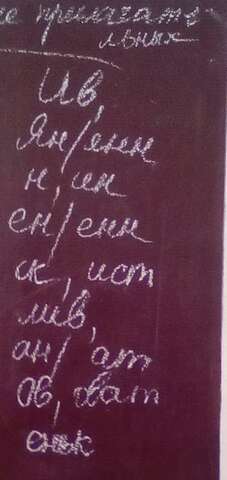 е прилагате
льных
Ив,
ян/енн
н, ин
ен/енн
ск, ист
лив,
ан/ ат
Ов, оват
еньк